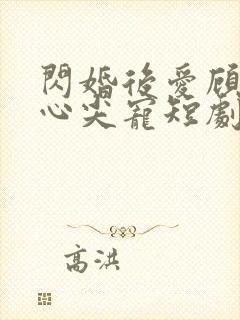 閃婚後愛顧
心尖寵短劇
高洪